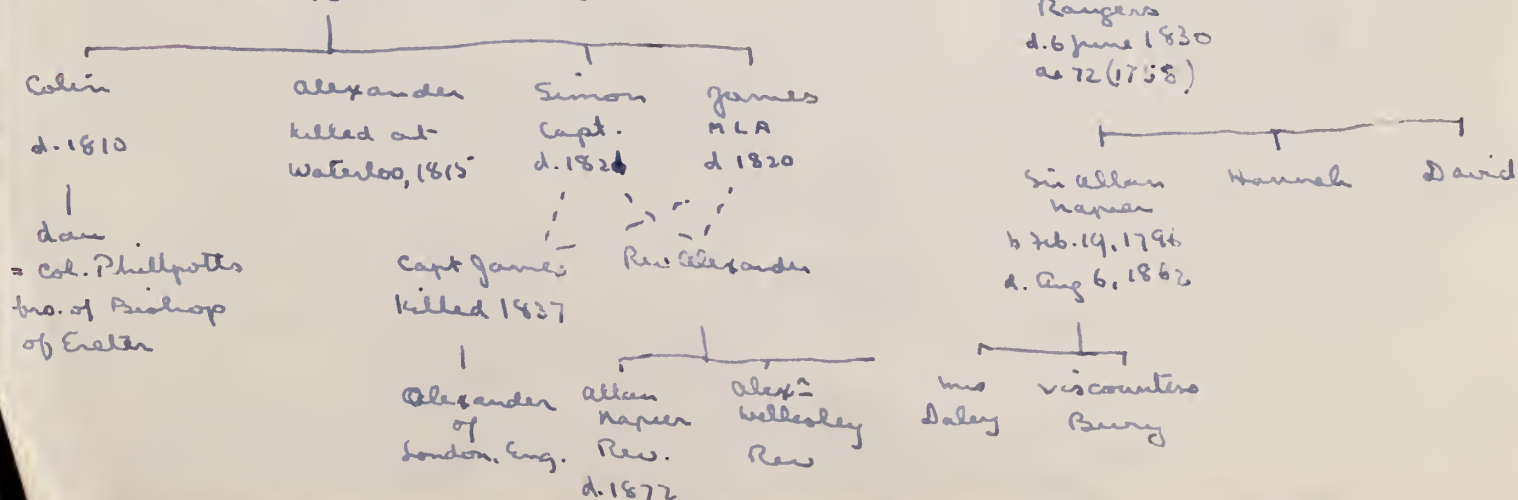 Rangers
d. 6 June 1830
ae 72 (1758)
Colin
d. 1810
dau
= Col. Phillpotts
bro. of Bishop
of Exeter
Alexander
killed at
Waterloo, 1815
Simon
Capt.
James
MLA
d 1820
Capt James
killed 1837
Rev Alexander
Alexander
of
London, Eng.
Allan
Napier
Rev.
d. 1877
Alexr
Wellesley
Rev
Sir Allan
Napier
b Feb. 19, 1798
d. Aug 6, 1862
Hannah
David
Mrs
Daley
Viscountess
Bury